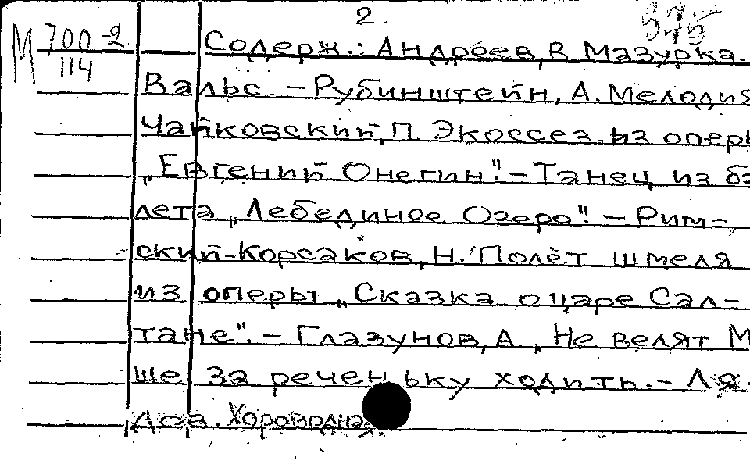 2.
575
М 700-2
114
Содерж.: Андреев, В. Мазурка.
Вальс. – Рубинштейн, А. Мелодия
Чайковский, П. Экоссез из оперы
„Евгений Онегин". – Танец из ба
лета „Лебединое Озеро". – Рим-
ский-Корсаков, Н. Полёт шмеля
из оперы „Сказка о царе Сал-
тане". – Глазунов, А. Не велят М
ше за реченьку ходить. – Ля
дов. Хороводная